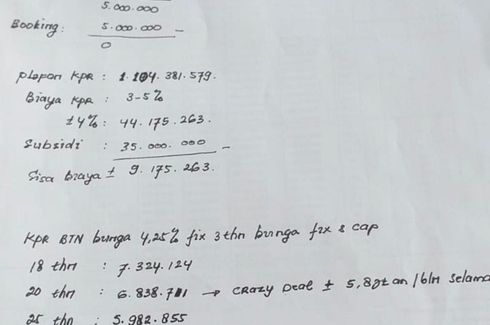 5.000.000
Booking: 5.000.000 –
0
plapon KPR : 1.104.381.579.
Biaya KPR : 3-5%
±4% : 44.175.263.
Subsidi : 35.000.000 –
Sisa biaya ± 9.175.263.
KPR BTN bunga 4,25% fix 3 thn bunga fix & cap
18 thn : 7.324.124
20 thn : 6.838.711 → crazy Deal ± 5,8jt an / bln selama
25 thn : 5.982.855